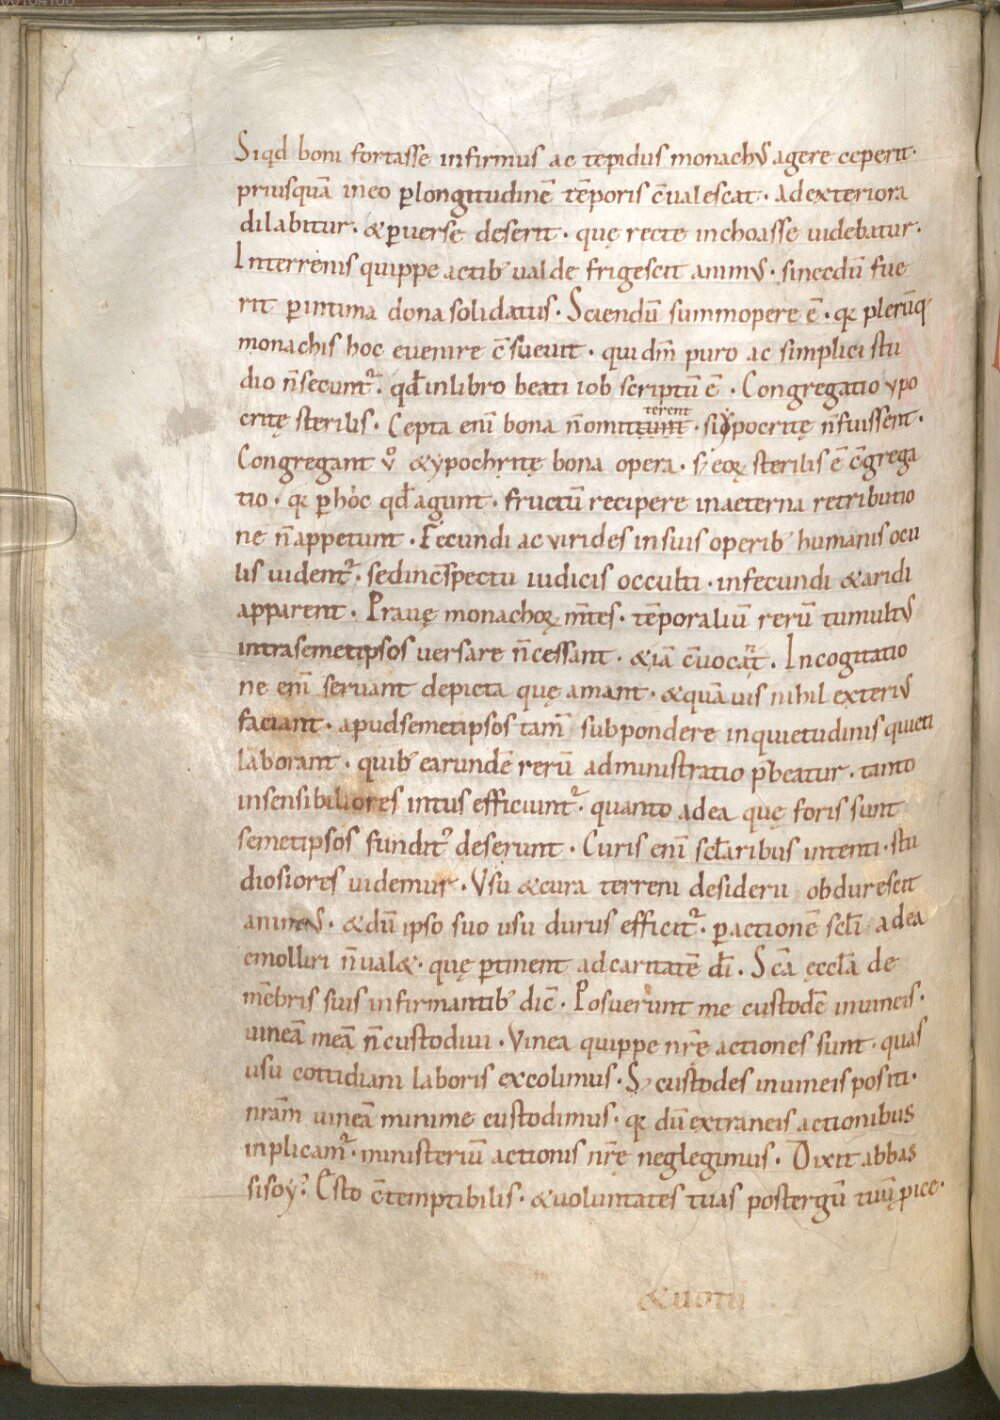 Siqd boni fortasse infirmus ac tepidus monachꝰ agere ceperit·
priusquā in eo ꝑlongitudinē tēporis c̄ualescat· ad exteriora
dilabitur· & ꝑuerse deserit· quę recte inchoasse uidebatur·
Interrenis quippe actib; ualde frigescit animꝰ· sinecdū fue
rit ꝑ intima dona solidatus· Sciendū summopere ē· qꝛ plerūq;
monachis hoc euenire c̄sueuit· qui dn̄i puro ac simplici stu
dio n̄secunt᷑· qd̄ in libro beati iob scriptū ē· Congregatio ypo
critę sterilis· Cepta eni͞ bona n̄omitterent· si ypocritę n̄fuissent·
Congregant v̊ & ypochritę bona opera· s; eoꝝ sterilis ē c̄grega
tio· qꝛ ꝑ hoc qd̄ agunt· fructū recipere in aeterna retributio
ne n̄appetunt· Fecundi ac virides in suis operib; humanis ocu
lis uident᷑· sed in c̄spectu iudicis occulti· infecundi & aridi
apparent· Prauę monachoꝝ m̄tes· tēporaliū rerū tumultꝰ
intra semetipsos versare n̄cessant· & iā c̄uocāt᷑· In cogitatio
ne eni͞ servant depicta quę amant· & quāuis nihil exteriꝰ
faciant· apud semetipsos tam̄ sub pondere inquietudinis quieti
laborant· quib; earundē rerū administratio p̄beatur· tanto
insensibiliores intus efficiunt᷑· quanto ad ea quę foris sunt
semetipsos fundit᷑ deserunt· Curis eni͞ scl̄aribus intenti· stu
diosiores uidemur· Vsu & cura terreni desiderii obdurescit
animꝰ· & dū ipso suo usu durus efficit᷑· ꝑ actionē scl̄i ad ea
emolliri n̄ ual&· quę ꝑtinent ad caritatē dī· Scā ęccl̄a de
mēbris suis infirmantib; dic̄· Posuerunt me custodē in uineis·
uineā meā n̄ custodiui· Vinea quippe nr̄ę actiones sunt· quas
usu cottidiani laboris excolimus· S; custodes in uineis positi·
nrām uineā minime custodimus· qꝛ dū extraneis actionibus
inplicam᷑· ministeriū actionis nr̄ę neglegimus· Dixit abbas
sisoy᷑ Esto c̄temptibilis· & voluntates tuas postergū tuū ꝓice·
& uotū